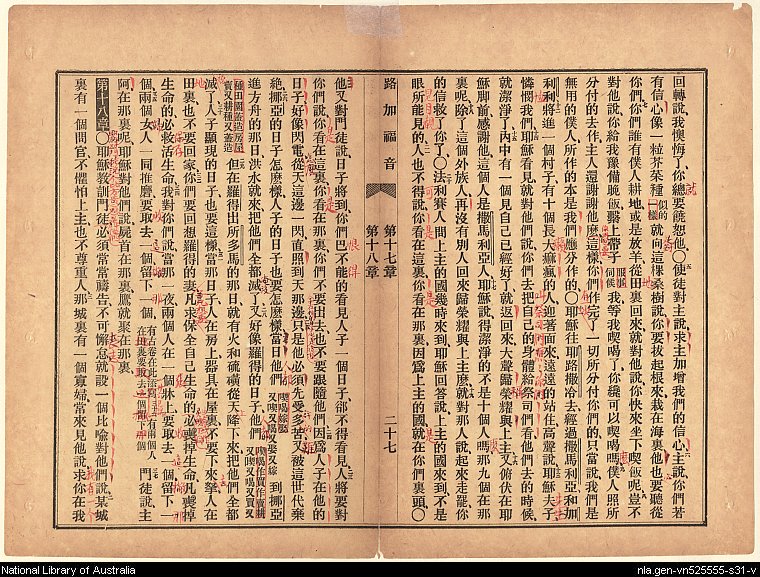 回轉說、我懊悔了、你總要饒恕他〇使徒對主說、求主加增我們的信心、主說、你們若
有信心像一粒芥菜種似的一樣就向這棵桑樹說、你要拔起根來、栽在海裏、他也要聽從
你們、你們誰有僕人耕地、或是放羊、從田裏回來、就對他說、你快來坐下喫飯呢、豈不
對他說、你給我豫備晚飯、繫上帶子、服事伺候我、等我喫喝了、你纔可以喫喝嗎、僕人照所
分付的去作、主人還謝謝他麽、這樣、你們作完了一切所分付你們的、只當說、我們是
無用的僕人、所作的、本是我們應分作的、〇耶穌往耶路撒冷去、經過撒馬利亞和加
利利、將進一個村子、有十個長大痲瘋的人、迎著面來、遠遠的站住、高聲說、耶穌夫子、
憐憫我們、耶穌看見、就對他們說、你們去把自己的身體給祭司們看、他們去的時候、
就潔淨了、內中有一個見自己已經好了、就返回來、大聲歸榮耀與上主、又俯伏在耶
穌脚前感謝他、這個人是撒馬利亞人、耶穌說、得潔淨的不是十個人嗎、那九個在那
裏呢、除了這個外族人、再沒有別人回來歸榮耀與上主麽、就對那人說、起來走罷、你
的信救了你了、〇法利賽人問上主的國幾時來到、耶穌回答說、上主的國來到、不是
眼所能見的、人也不得說、你看在這裏、你看在那裏、因爲上主的國就在你們裏頭、〇
路加福音 第十七章 第十八章 二十七
他又對門徒說、日子將到、你們巴不能的看見人子一個日子、卻不得看見、人將要對
你們說、你看在這裏、你看在那裏、你們不要出去、也不要跟隨他們、因爲人子在他的
日子、好像閃電從天這邊一閃、直照到天那邊、只是他必須先受多苦、又被這世代棄
絕、挪亞的日子怎麽樣、人子的日子也要怎麽樣、當日他們喫喝嫁娶又喫又喝又娶又嫁到挪亞
進方舟的那日、洪水就來、把他們全都滅了、又好像羅得的日子、他們喫喝作買作賣耕又喫又喝又買又
種田園蓋造房屋賣又耕種又蓋造但在羅得出所多馬的那日、就有火和硫磺從天降下來、把他們全都
滅了、人子顯現的日子、也要這樣、當那日子、人在房上、器具在屋裏、不要下來拏、人在
田裏、也不要回家、你們要回想羅得的妻、凡求保全自己生命的、必要喪掉生命、凡喪掉
生命的、必救活生命、我對你們說、當那一夜、兩個人在一個牀上、要取去一個、留下一
個、兩個女人一同推磨、要取去一個、留下一個、有古卷在此添寫有兩個人在田裏要取去一個留下一個門徒說、主
阿、在那裏呢、耶穌對他們說、屍首在那裏、鷹就聚在那裏、
第十八章〇耶穌教訓門徒、必須常常禱告、不可懈怠、就設一個比喩對他們說、某城
裏有一個問官、不懼怕上主、也不尊重人、那城裏有一個寡婦、常來見他說、求你在我
National Library of Australia
nla.gen-vn525555-s31-v